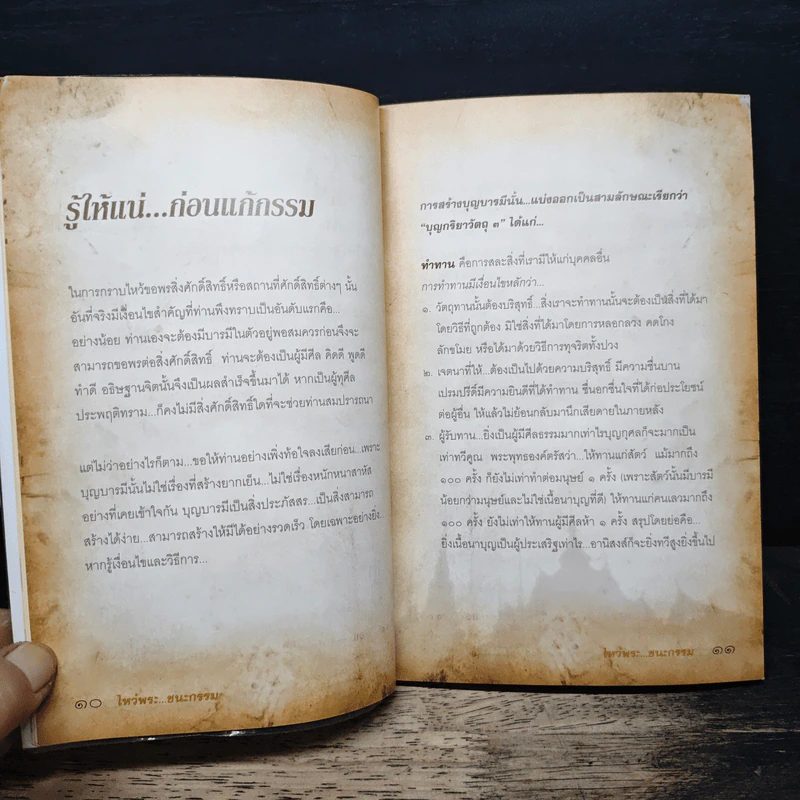 รู้ให้แน่...ก่อนแก้กรรม
ในการกราบไหว้ขอพรสิ่งศักดิ์สิทธิ์หรือสถานที่ศักดิ์สิทธิ์ต่างๆ นั้น
อันที่จริงมีเงื่อนไขสำคัญที่ท่านพึงทราบเป็นอันดับแรกคือ...
อย่างน้อย ท่านเองจะต้องมีบารมีในตัวอยู่พอสมควรก่อนจึงจะ
สามารถขอพรต่อสิ่งศักดิ์สิทธิ์ ท่านจะต้องเป็นผู้มีศีล คิดดี พูดดี
ทำดี อธิษฐานจิตนั้นจึงเป็นผลสำเร็จขึ้นมาได้ หากเป็นผู้ทุศีล
ประพฤติทราม...ก็คงไม่มีสิ่งศักดิ์สิทธิ์ใดที่จะช่วยท่านสมปรารถนา
แต่ไม่ว่าอย่างไรก็ตาม...ขอให้ท่านอย่าเพิ่งท้อใจลงเสียก่อน...เพราะ
บุญบารมีนั้นไม่ใช่เรื่องที่สร้างยากเย็น...ไม่ใช่เรื่องหนักหนาสาหัส
อย่างที่เคยเข้าใจกัน บุญบารมีเป็นสิ่งประภัสสร...เป็นสิ่งสามารถ
สร้างได้ง่าย...สามารถสร้างให้มีได้อย่างรวดเร็ว โดยเฉพาะอย่างยิ่ง...
หากรู้เงื่อนไขและวิธีการ...
๑๐ ไหว้พระ...ชนะกรรม
การสร้างบุญบารมีนั้น...แบ่งออกเป็นสามลักษณะเรียกว่า
“บุญกริยาวัตถุ ๓” ได้แก่...
ทำทาน คือการสละสิ่งที่เรามีให้แก่บุคคลอื่น
การทำทานมีเงื่อนไขหลักว่า...
๑. วัตถุทานนั้นต้องบริสุทธิ์...สิ่งเราจะทำทานนั้นจะต้องเป็นสิ่งที่ได้มา
โดยวิธีที่ถูกต้อง มิใช่สิ่งที่ได้มาโดยการหลอกลวง คดโกง
ลักขโมย หรือได้มาด้วยวิธีการทุจริตทั้งปวง
๒. เจตนาที่ให้...ต้องเป็นไปด้วยความบริสุทธิ์ มีความชื่นบาน
เปรมปรีดิ์มีความยินดีที่ได้ทำทาน ชื่นอกชื่นใจที่ได้ก่อประโยชน์
ต่อผู้อื่น ให้แล้วไม่ย้อนกลับมานึกเสียดายในภายหลัง
๓. ผู้รับทาน...ยิ่งเป็นผู้มีศีลธรรมมากเท่าไรบุญกุศลก็จะมากเป็น
เท่าทวีคูณ พระพุทธองค์ตรัสว่า...ให้ทานแก่สัตว์ แม้มากถึง
๑๐๐ ครั้ง ก็ยังไม่เท่าทำต่อมนุษย์ ๑ ครั้ง (เพราะสัตว์นั้นมีบารมี
น้อยกว่ามนุษย์และไม่ใช่เนื้อนาบุญที่ดี) ให้ทานแก่คนเลวมากถึง
๑๐๐ ครั้ง ยังไม่เท่าให้ทานผู้มีศีลห้า ๑ ครั้ง สรุปโดยย่อคือ...
ยิ่งเนื้อนาบุญเป็นผู้ประเสริฐเท่าไร...อานิสงส์ก็จะยิ่งทวีสูงยิ่งขึ้นไป
ไหว้พระ...ชนะกรรม ๑๑